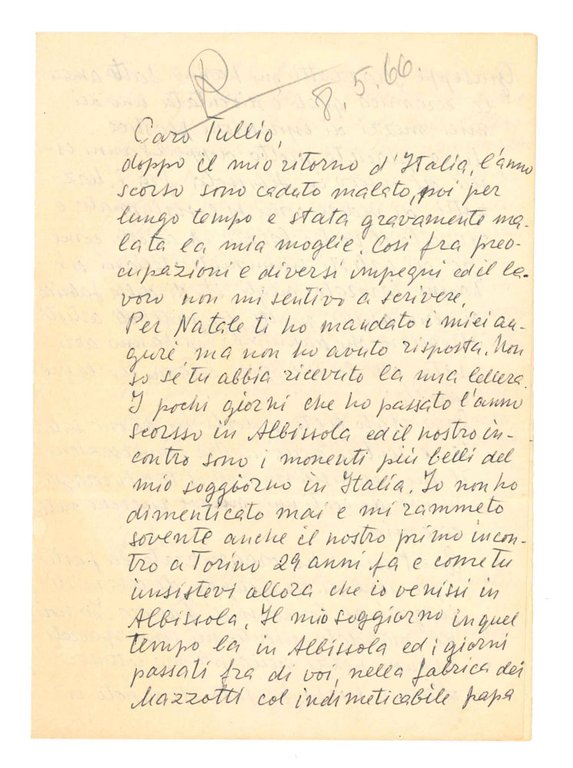 R
8.5.66
Caro Tullio,
doppo il mio ritorno d'Italia, l'anno
scorso sono caduto malato, poi per
lungo tempo e stata gravamente ma-
lata la mia moglie. Cosi fra preo-
cupazioni e diversi impegni ed il la-
voro non mi sentivo a scrivere.
Per Natale ti ho mandato i miei au-
guri, ma non ho avuto risposta. Non
so se tu abbia ricevuto la mia lettera.
I pochi giorni che ho passato l'anno
scorsso in Albissola ed il nostro in-
contro sono i monenti più belli del
mio soggiorno in Italia. Io non ho
dimenticato mai e mi rammeto
sovente anche il nostro primo incon-
tro a Torino 29 anni fa e come tu
innsistevi allora che io venissi in
Albissola. Il mio soggiorno in quel
tempo la in Albissola ed i giorni
passati fra di voi, nella fabrica dei
Mazzotti col indimeticabile papa